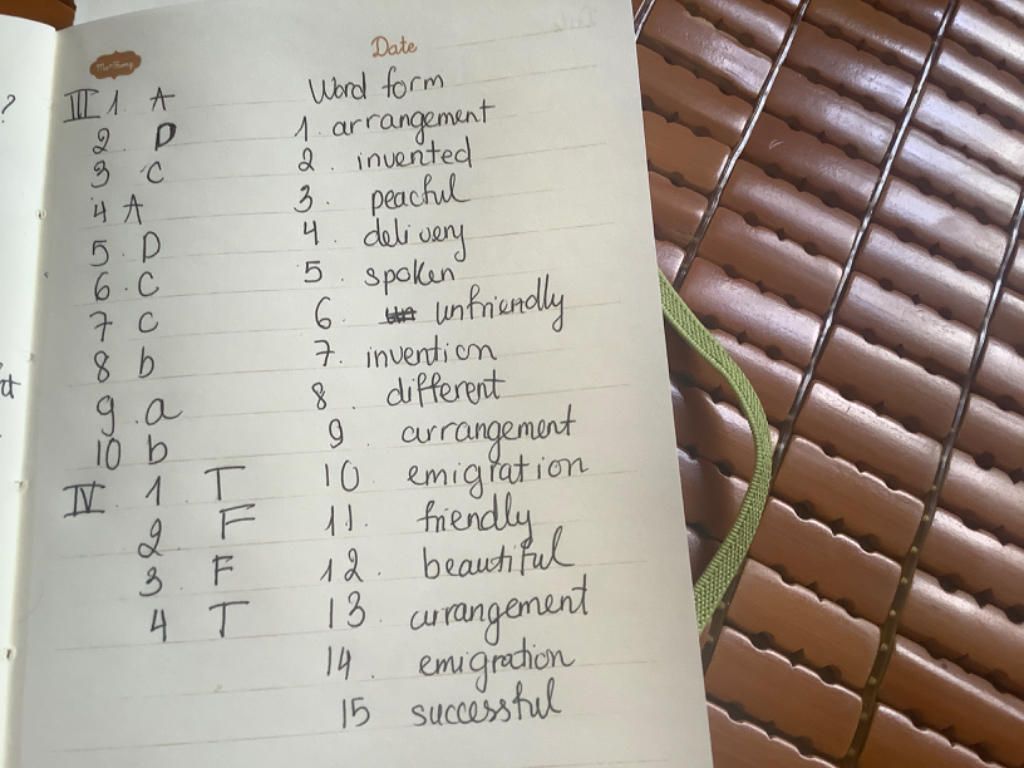 Date
III 1. A
2. D
3 C
4 A
5. D
6. C
7 C
8 b
9. a
10 b
IV. 1 T
2. F
3. F
4 T
Word form
1. arrangement
2. invented
3. peacful
4. delivery
5. spoken
6. unfriendly
7. invention
8. different
9. arrangement
10 emigration
11. friendly
12. beautiful
13. arrangement
14. emigration
15 successful
?